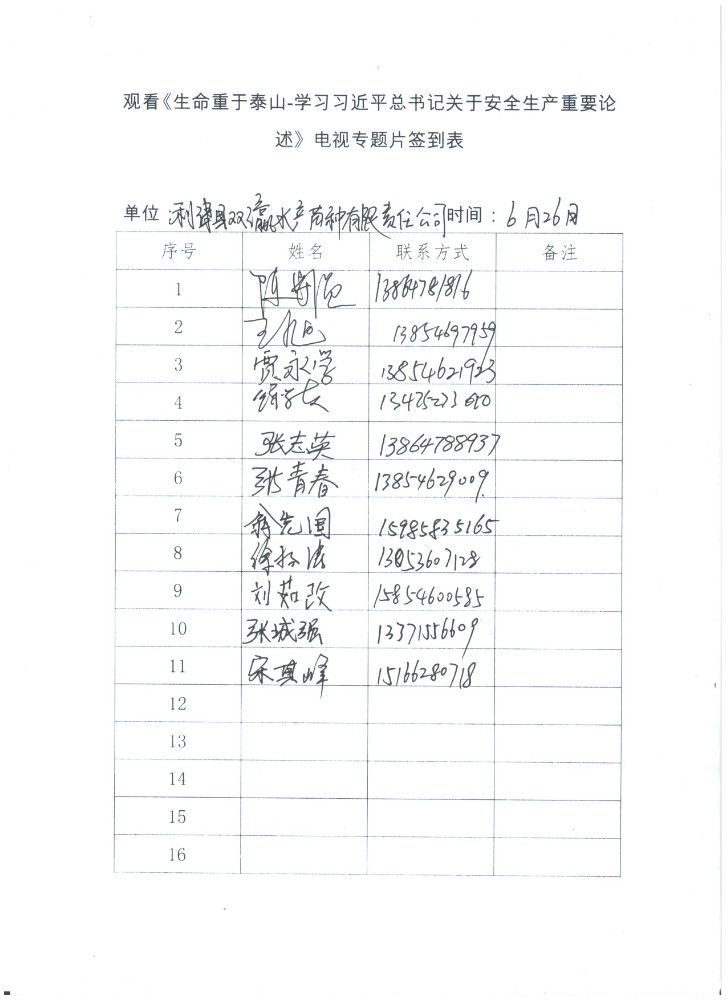 观看《生命重于泰山-学习习近平总书记关于安全生产重要论
述》电视专题片签到表
单位:利津县双瀛水产苗种有限责任公司时间:6月26日
序号 姓名 联系方式 备注
1 13864781816
2 王旭 13854697959
3 贾永学 13854621923
4
5 张志英 13864788937
6 张青春 13854629009
7 15985835165
8 13053607128
9 刘茹改 15854600585
10 张城强 13371556609
11 宋真峰 15166280718
12
13
14
15
16